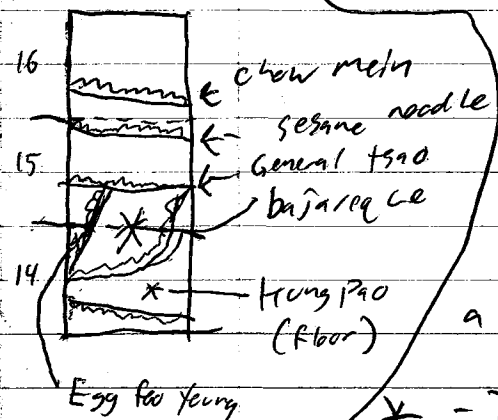 16
chow mein
sesame noodle
15
General tsao
bajareque
14
Kung Pao
(floor)
a
Egg Foo Yeung